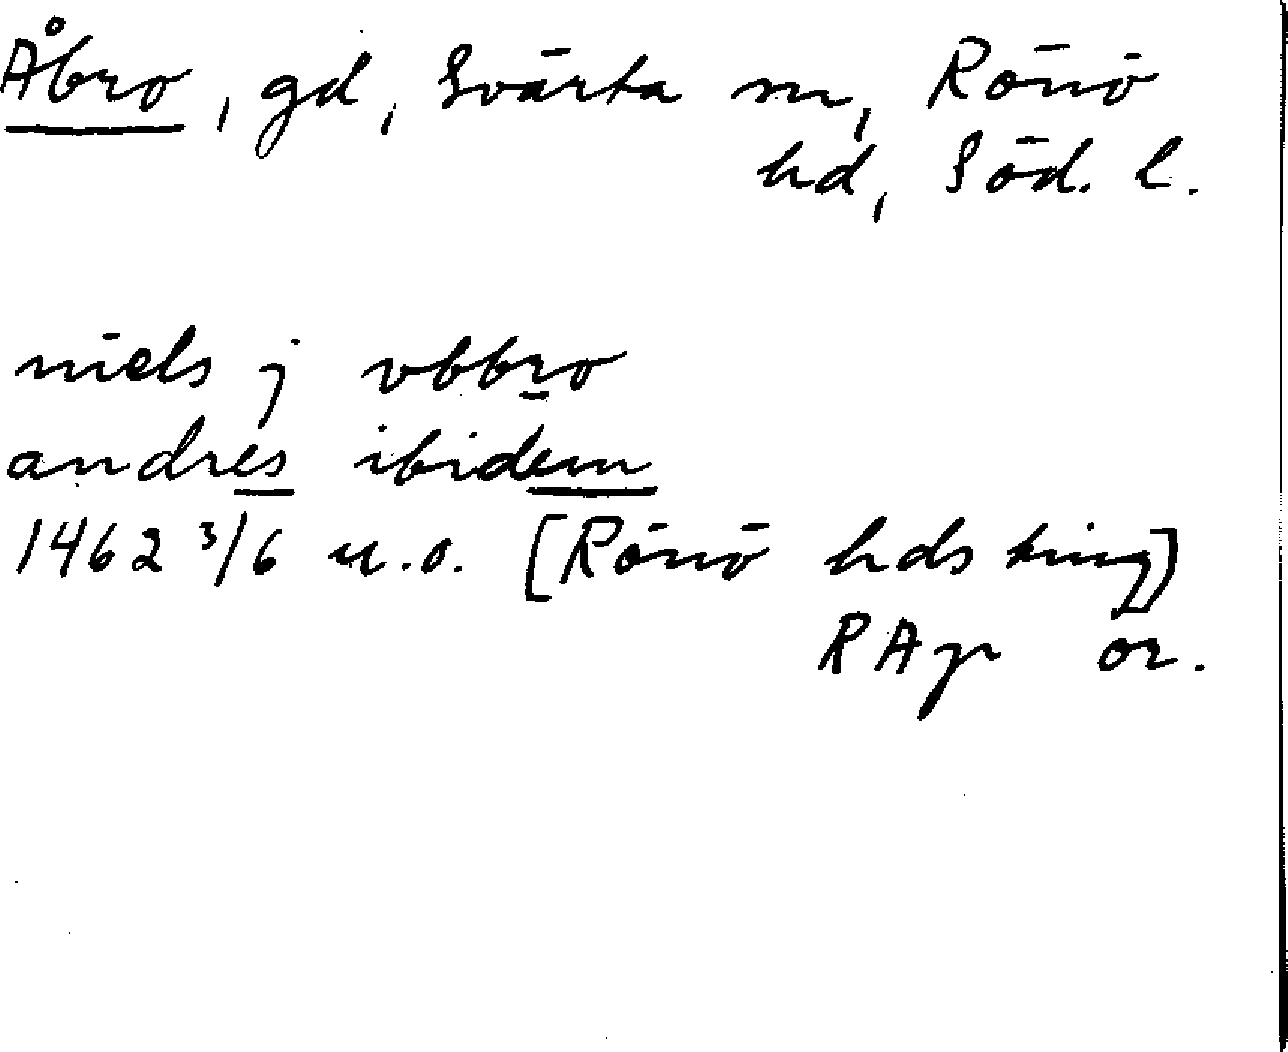 Åbro, gd, Svärta sn, Rönö
hd, Söd. l.
niels j vbbro
andres ibidem
1462 3/6 u.o. [Rönö hds ting]
RAp or.